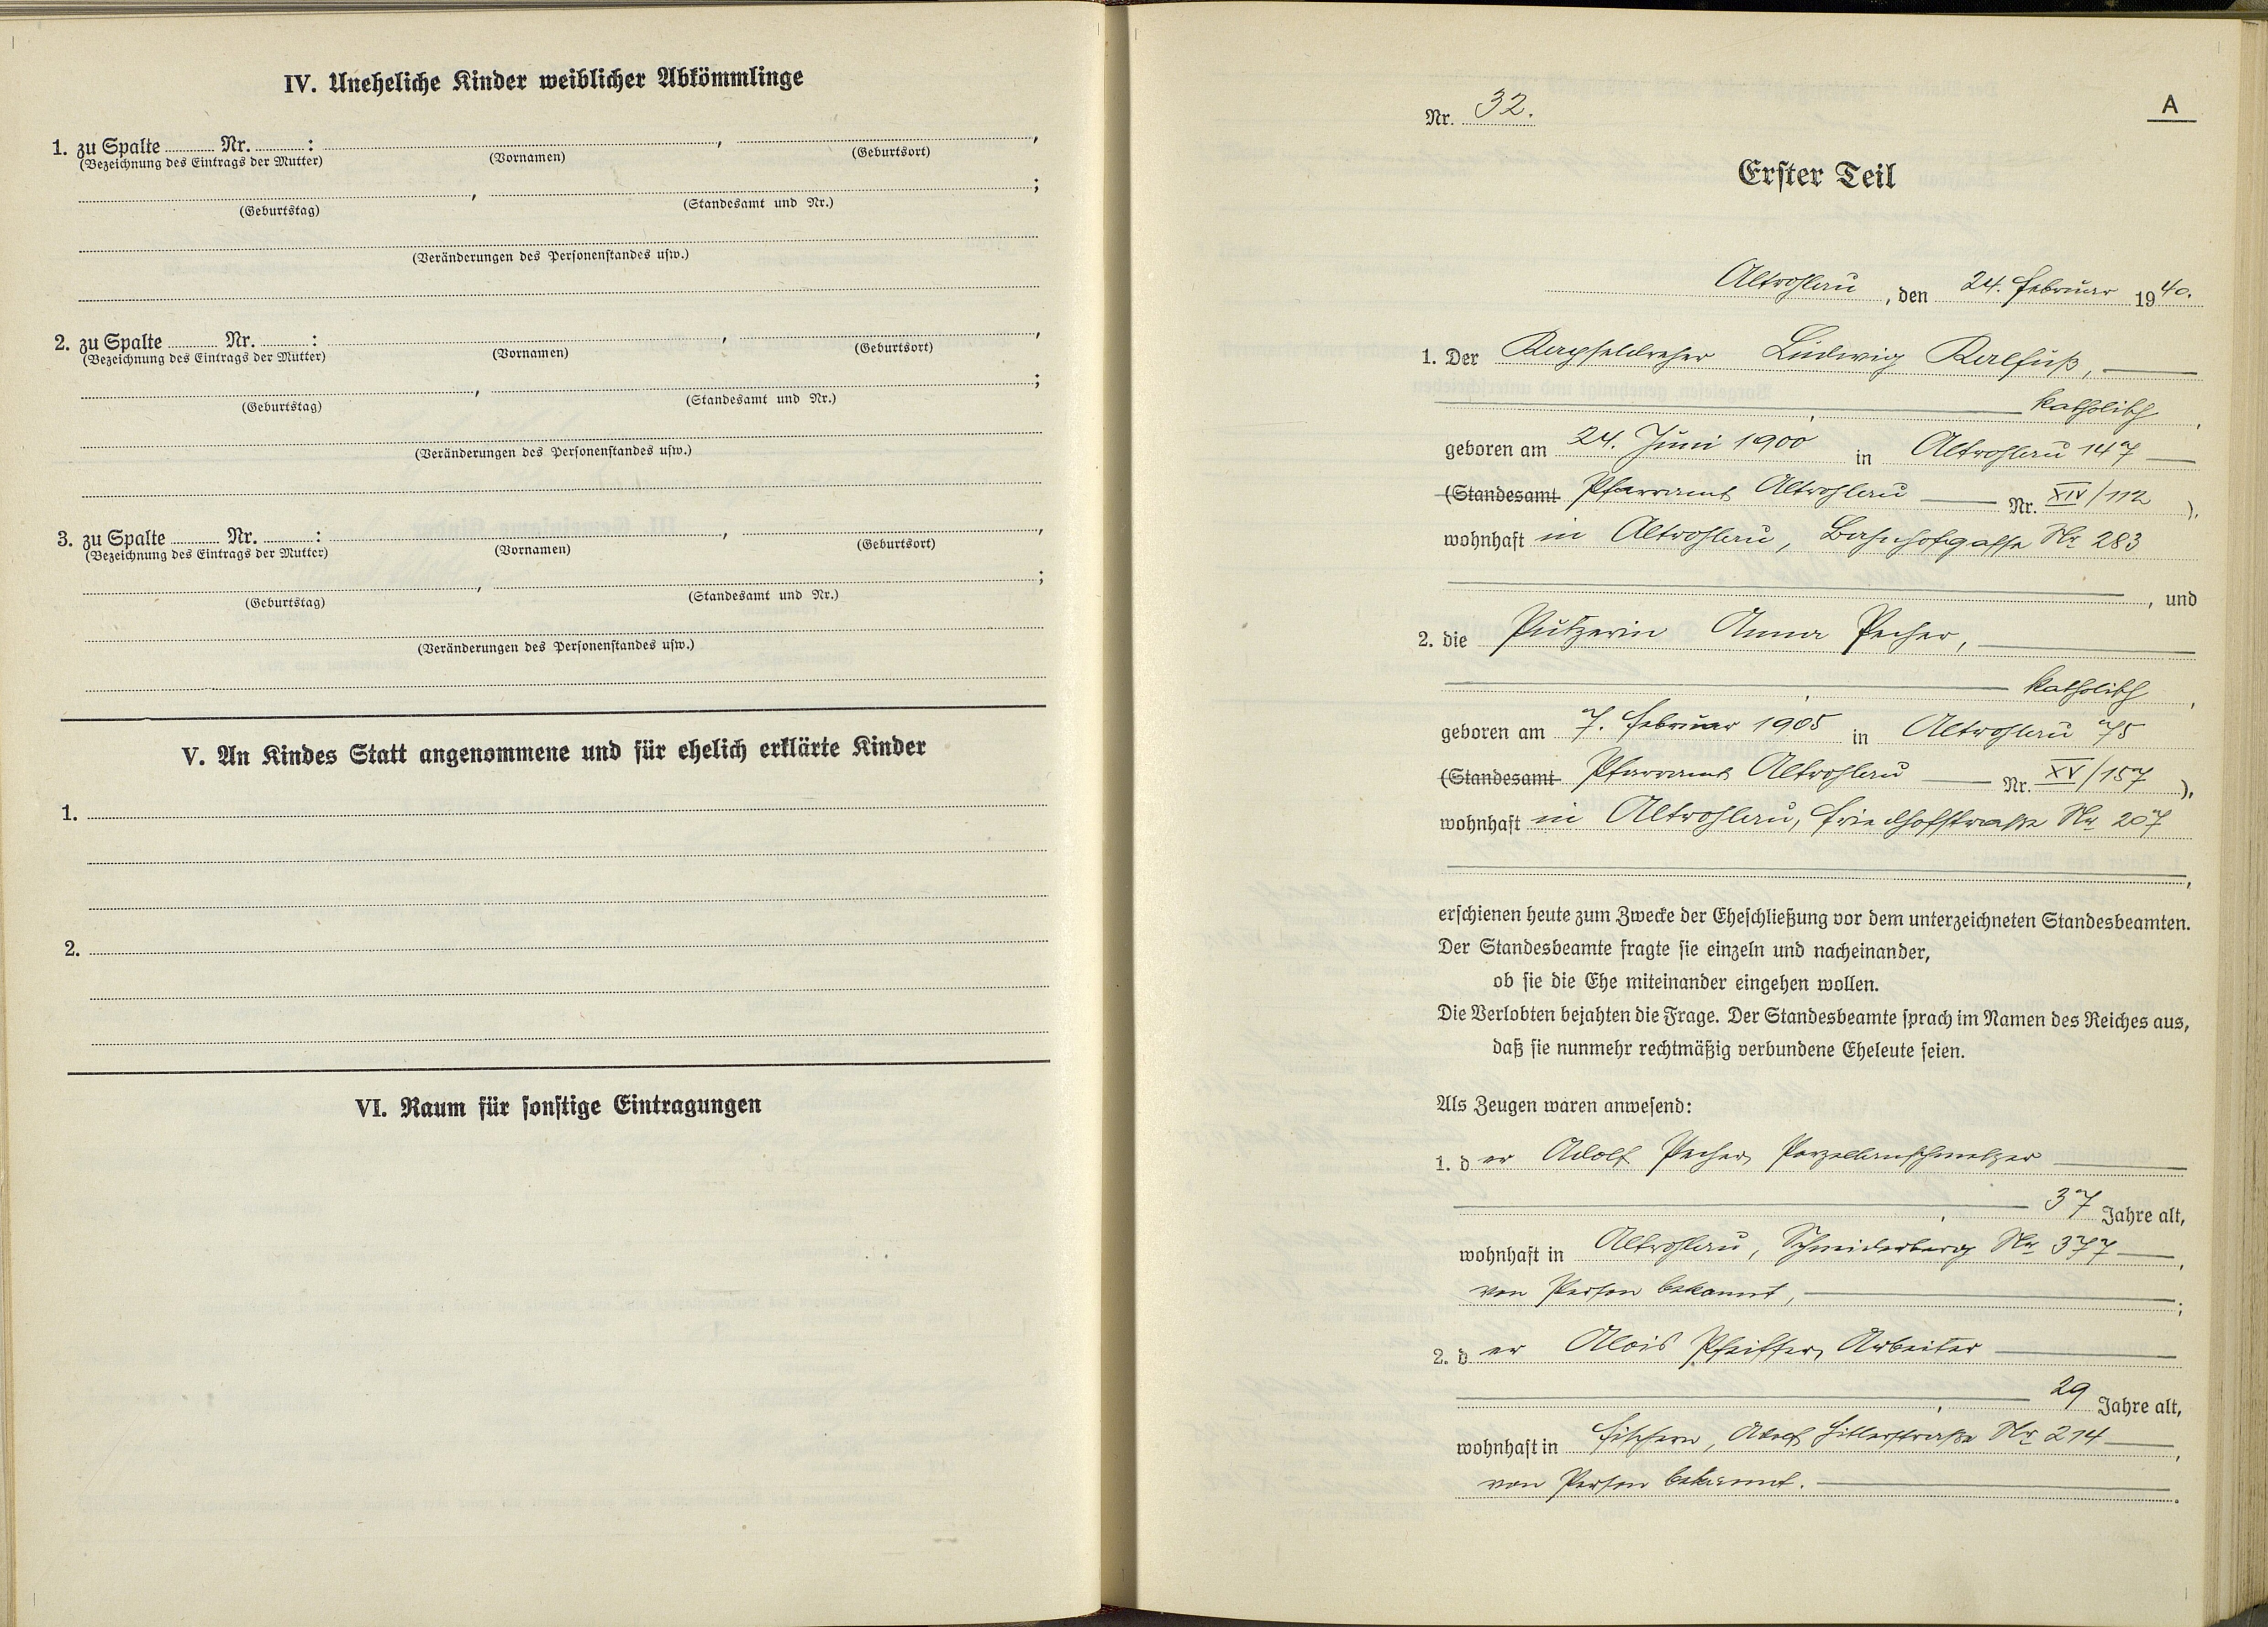 IV. Uneheliche Kinder weiblicher Abkömmlinge
1. zu Spalte ........ Nr. ........ : , ,
(Bezeichnung des Eintrags der Mutter) (Vornamen) (Geburtsort)
, ;
(Geburtstag) (Standesamt und Nr.)
(Veränderungen des Personenstandes usw.)
2. zu Spalte ........ Nr. ........ : , ,
(Bezeichnung des Eintrags der Mutter) (Vornamen) (Geburtsort)
, ;
(Geburtstag) (Standesamt und Nr.)
(Veränderungen des Personenstandes usw.)
3. zu Spalte ........ Nr. ........ : , ,
(Bezeichnung des Eintrags der Mutter) (Vornamen) (Geburtsort)
, ;
(Geburtstag) (Standesamt und Nr.)
(Veränderungen des Personenstandes usw.)
V. An Kindes Statt angenommene und für ehelich erklärte Kinder
1.
2.
VI. Raum für sonstige Eintragungen
A
Nr. 32.
Erster Teil
Altrohlau, den 24. Februar 1940.
1. Der Kapseldreher Ludwig Kalfuß,
katholisch,
geboren am 24. Juni 1900 in Altrohlau 147
(Standesamt Pfarramt Altrohlau Nr. XIV/112),
wohnhaft in Altrohlau, Bahnhofgasse Nr 283
, und
2. die Putzerin Anna Pecher,
katholisch,
geboren am 7. Februar 1905 in Altrohlau 75
(Standesamt Pfarramt Altrohlau Nr. XV/157),
wohnhaft in Altrohlau, Friedhofstraße Nr 207
,
erschienen heute zum Zwecke der Eheschließung vor dem unterzeichneten Standesbeamten.
Der Standesbeamte fragte sie einzeln und nacheinander,
ob sie die Ehe miteinander eingehen wollen.
Die Verlobten bejahten die Frage. Der Standesbeamte sprach im Namen des Reiches aus,
daß sie nunmehr rechtmäßig verbundene Eheleute seien.
Als Zeugen waren anwesend:
1. der Adolf Pecher, Porzellanschmelzer
, 37 Jahre alt,
wohnhaft in Altrohlau, Schneiderberg Nr 377,
von Person bekannt, ;
2. der Alois Pfeiffer, Arbeiter
, 29 Jahre alt,
wohnhaft in Fischern, Adolf Hitlerstraße Nr 214,
von Person bekannt.